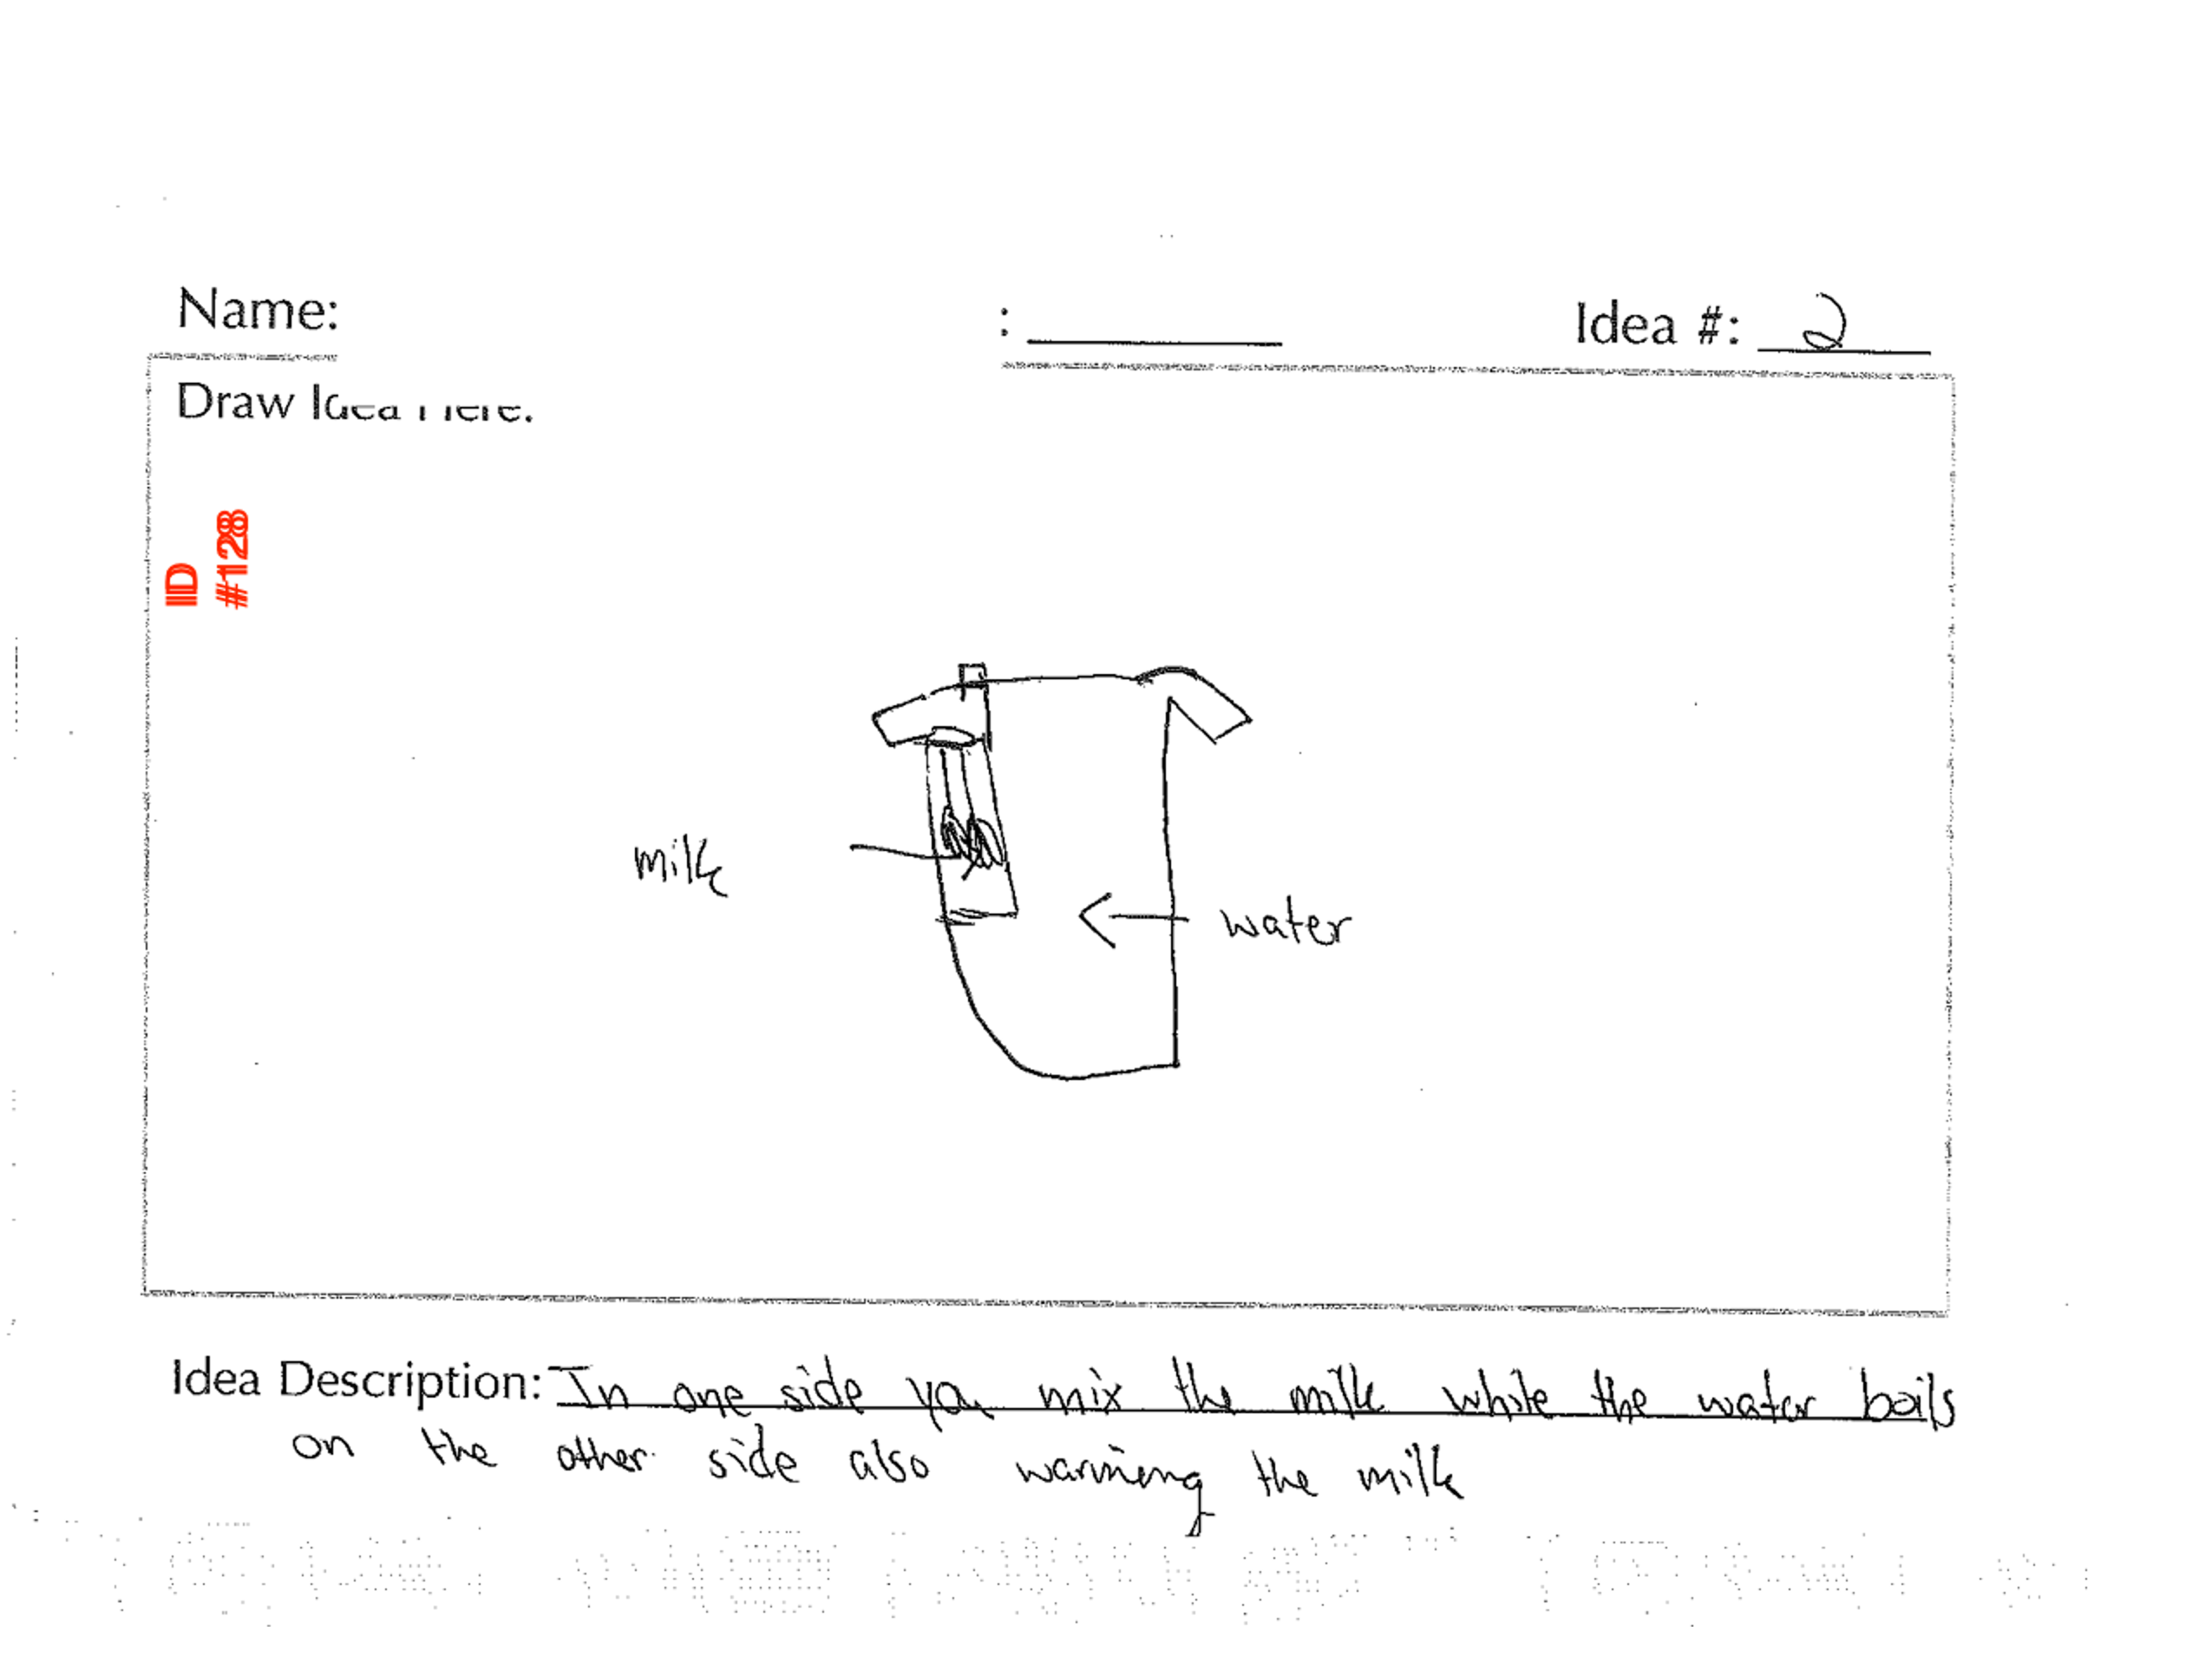 Name:
: Idea #: 2
Draw Idea Here.
ID
#128
milk
water
Idea Description: In one side you mix the milk while the water boils
on the other side also warming the milk